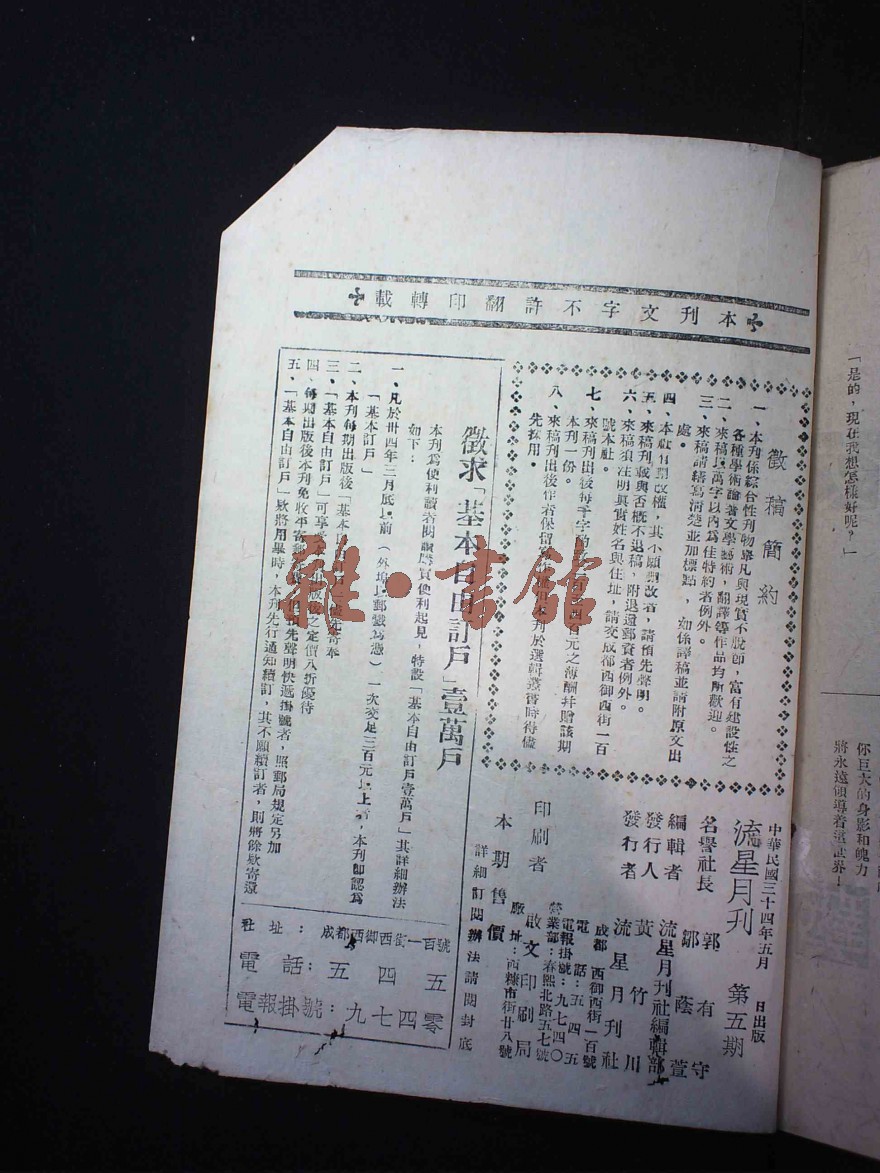 本刊文字不許翻印轉載
徵稿簡約
一、本刊係綜合性刊物舉凡與現實不脫節，富有建設性之
各種學術論著文學藝術，翻譯等作品均所歡迎。
二、來稿以萬字以內為佳特約者例外。
三、來稿請繕寫清楚並加標點，如係譯稿並請附原文出
處。
四、本社有刪改權，其不願刪改者，請預先聲明。
五、來稿刊載與否概不退稿，附退還郵資者例外。
六、來稿須注明真實姓名與住址，請交成都西御西街一百
號本社。
七、來稿刊出後每千字
百元之薄酬幷贈該期
本刊一份。
八、來稿刊出後作者保留
本刊於選輯叢書時得儘
先採用。
徵求「基本自由訂戶」壹萬戶
本刊為便利讀者閱讀購買便利起見，特設「基本自由訂戶壹萬戶」其詳細辦法
如下：
一、凡於卅四年三月底以前（外埠以郵戳為憑）一次交足三百元以上者，本刊即認為
「基本訂戶」
二、本刊每期出版後「基本自由訂戶」優先寄奉
三、「基本自由訂戶」可享
出版後之定價八折優待
四、每期出版後本刊免收平寄郵
預先聲明快遞掛號者，照郵局規定另加
五、「基本自由訂戶」欵將用畢時，本刊先行通知續訂，其不願續訂者，則將餘欵寄還
社址：成都西御西街一百號
電話：五四五
電報掛號：九七四零
中華民國三十四年五月 日出版
流星月刊 第五期
名譽社長 郭有守
鄒蔭萱
編輯者 流星月刊社編輯部
發行人 黃竹川
發行者 流星月刊社
成都 西御西街一百號
電話：五四五
電報掛號：九七四〇
印刷者 啟文印刷局
營業部：春熙北路五七號
廠址：西糠市街廿八號
本期售價
詳細訂閱辦法請閱封底
雜·書館
「是的，現在我想怎樣好呢？」
你巨大的身影和魄力
將永遠領導着這世界！